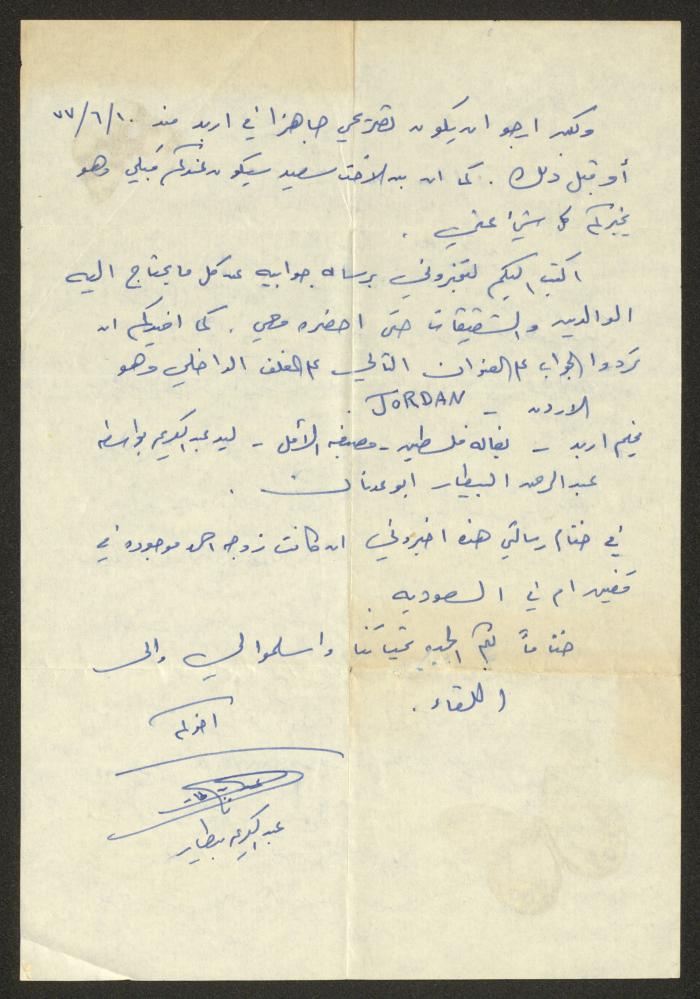 ولكن ارجو ان يكون تصريحي جاهزا في اربد منذ ٧٧/٦/١٠
أو قبل ذلك . كما ان سعيد سيكون عندكم قبلي وهو
يخبركم كل شيئ عني .
اكتب اليكم لتخبروني برساله جوابيه عن كل ما يحتاج اليه
الوالدين والشقيقات حتى احضره معي . كما اخبركم ان
تردوا الجواب على العنوان التالي على المغلف الداخلي وهو
الاردن - JORDAN .
مخيم اربد - بقاله فلسطين - - ليد عبد الكريم بواسطة
عبد الرحمن البيطار ابو عدنان .
في ختام رسالتي هذه اخبروني ان كانت زوجه احمد موجوده في
ام في السعوديه .
ختاماً لكم تحياتنا واسلموا لي والى
اللقاء .
اخوكم
عبد الكريم بيطار